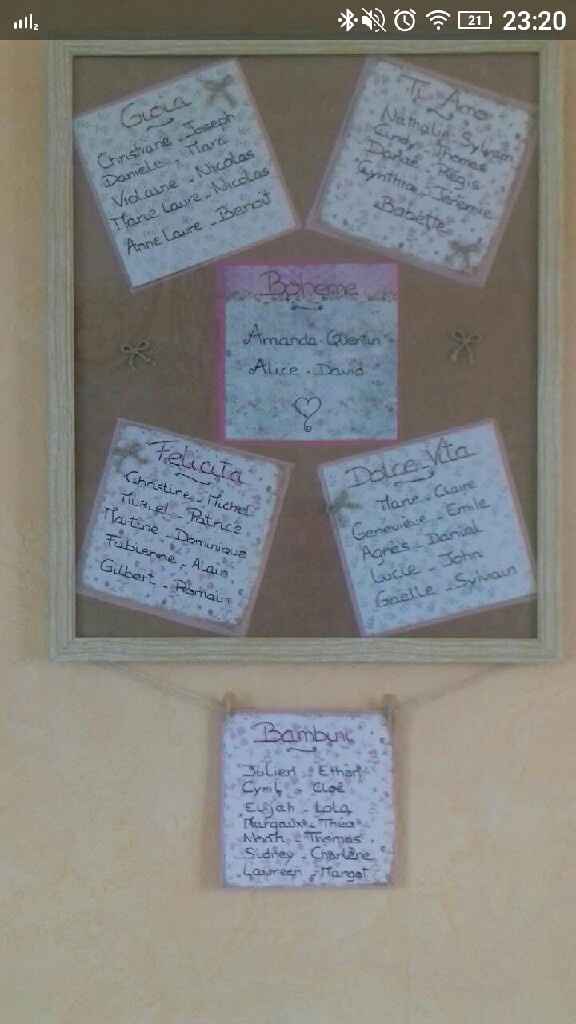 21 23:20
Gioia
Christiane - Joseph
Daniele - Marc
Violaine - Nicolas
Marie Laure - Nicolas
Anne Laure - Benoît
Ti Amo
Nathalie Sylvain
Cindy - Thomas
Danaé - Régis
Cynthia - Jérémie
Babette
Boheme
Amanda - Quentin
Alice - David
Felicita
Christine - Michel
Muriel - Patrice
Martine - Dominique
Fabienne - Alain
Gilbert - Romain
Dolce Vita
Marie - Claire
Geneviève - Emile
Agnès - Daniel
Lucie - John
Gaëlle - Sylvain
Bambini
Julien - Ethan
Cyril - Cloé
Elijah - Lola
Margaux - Théa
North - Thomas
Sidney - Charlène
Laureen - Margot